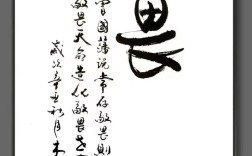 畏
曾國藩说常存敬畏則
敬畏天命造化敬畏
歲次辛丑秋月